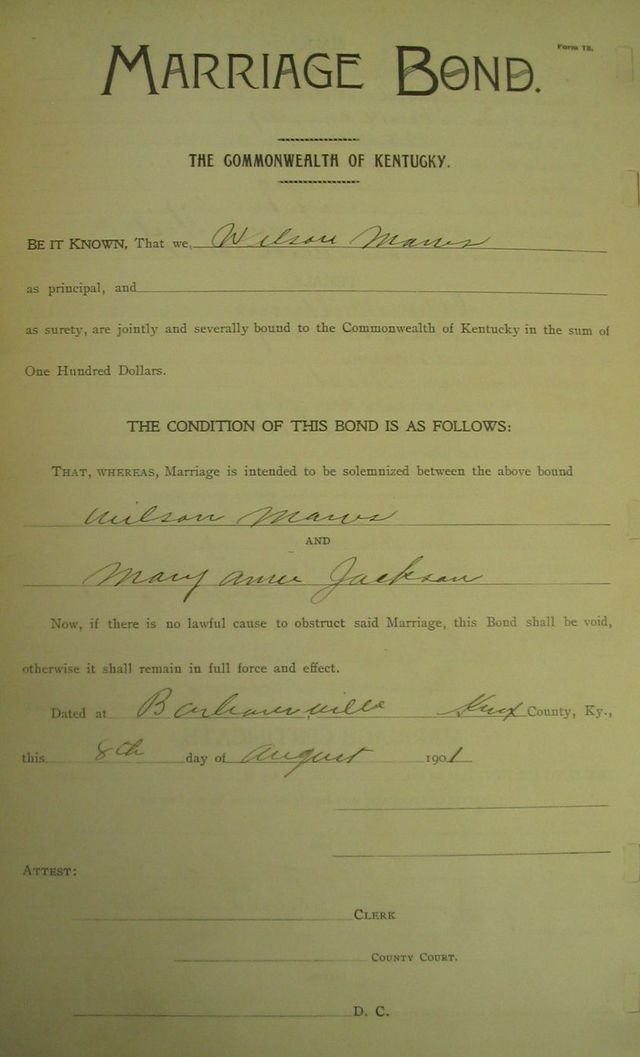 Form 18.
MARRIAGE BOND.
THE COMMONWEALTH OF KENTUCKY.
BE IT KNOWN, That we, Wilson
as principal, and
as surety, are jointly and severally bound to the Commonwealth of Kentucky in the sum of
One Hundred Dollars.
THE CONDITION OF THIS BOND IS AS FOLLOWS:
THAT, WHEREAS, Marriage is intended to be solemnized between the above bound
Wilson
AND
Mary Jackson
Now, if there is no lawful cause to obstruct said Marriage, this Bond shall be void,
otherwise it shall remain in full force and effect.
Dated at Barbourville Knox County, Ky.,
this 8th day of August 1901
ATTEST:
CLERK
COUNTY COURT.
D. C.